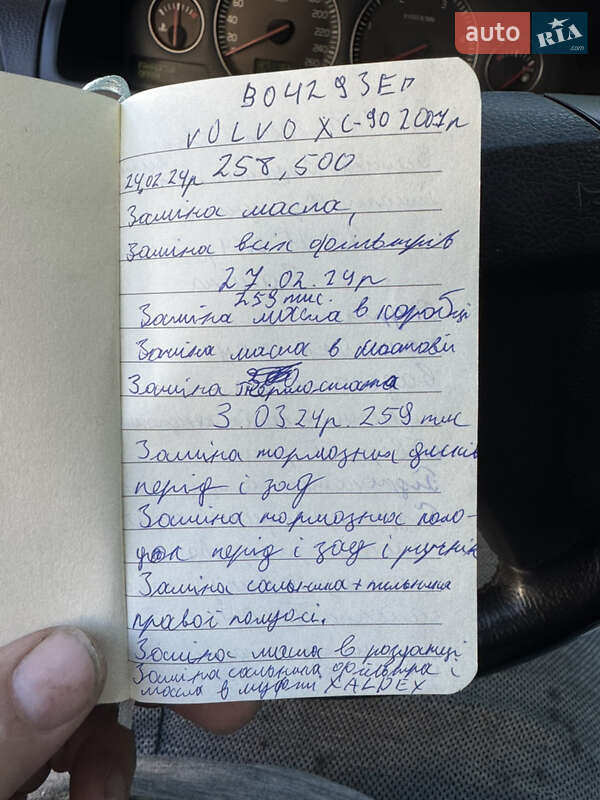 auto RIA.com
ВО4293ЕП
VOLVO XC-90 2007р
24.02.24р 258,500
Заміна масла,
Заміна всіх фільтрів
27.02.24р
259 тис.
Заміна масла в коробці
Заміна масла в мостові
Заміна термостата
3.03 24р. 259 тис
Заміна тормозних дисків
перід і зад
Заміна тормозних коло-
док перід і зад і ручнік
Заміна сальника + пильника
правої полуосі.
Заміна масла в роздатці
Заміна сальника, фільтра і
масла в муфті XALDEX